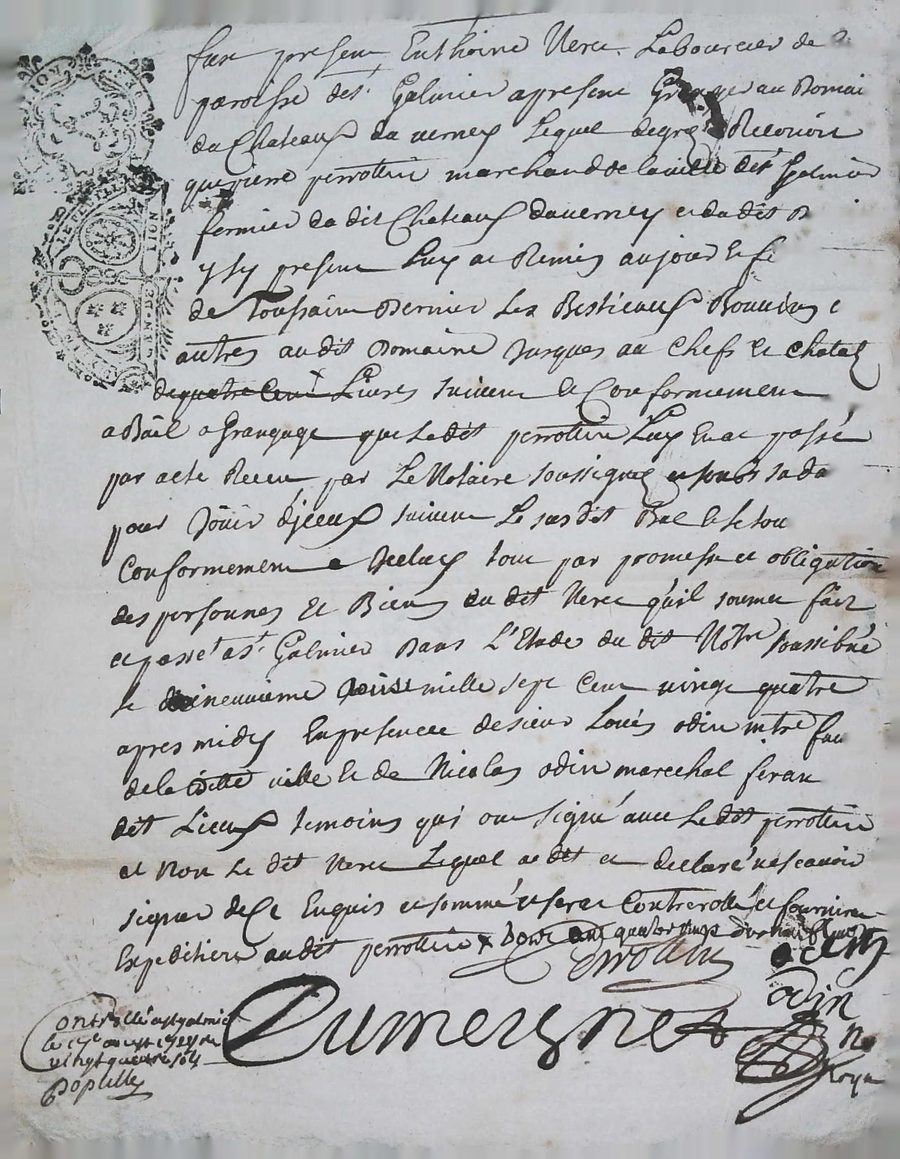 fust present Enthoine Nerce Laboureur de
paroisse de st Galmier apresent Granger au Domai
du Chateaux du verney Lequel degre Reconoit
que pierre perrottin marchand de la ville de st galmier
fermier du dit Chateaux du verney et du dit
y sy present Luy a Remis aujourd
de Toussain Bernier Les Bestieaux Bouvins e
autres audit Domaine Jusques au Chefs et Chatal
de quatre Cent Livres suivent et Conformement
a Bail a Grangage que Ledit perrottin Luy En a passé
par acte Receu par Le Notaire soussigné
pour Joüir djceux suivent Le susdit Bail
Conformement a Jceluy tout par promesse et obligation
des personnes Et Biens du dit Nerce qu'il soumet fait
et passé a st Galmier Dans L'Etude du dit Notre soussigné
Le dineuvieme mille sept Cent vingt quatre
apres midy En presence de sieur Loüis odin mtre
de la ditte ville et de Nicolas odin marechal feran
dit Lieux temoins qui ont signé avec Le dit perrottin
et Non Le dit Nerce Lequel a dit et declaré ne scavoir
signer de Ce Enquis et sommé sera Controllé et fournira
Expedition audit perrottin x Deux Cent quatre vingt dix neuf livres
Perrottin odin
odin
Dumeygnet
Roya
Controllé a st galmie
le aoust 1724
vingt quatre sols